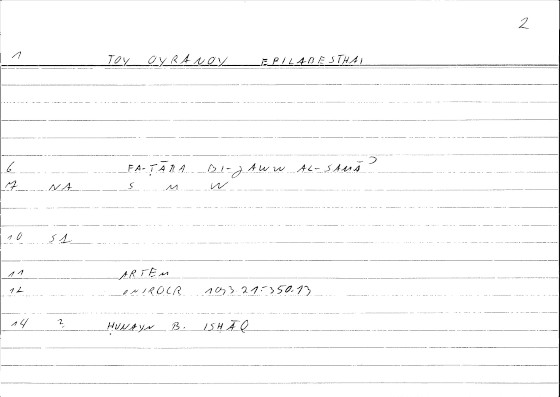 2
1 TOY OYRANOY EPILABESTHAI
6 FA-ṬĀRA BI-ǦAWW AL-SAMĀʾ
7 NA S M W
10 S1
11 ARTEM
12 ONIROCR 193 21=350.13
14 ? ḤUNAYN B. ISḤĀQ